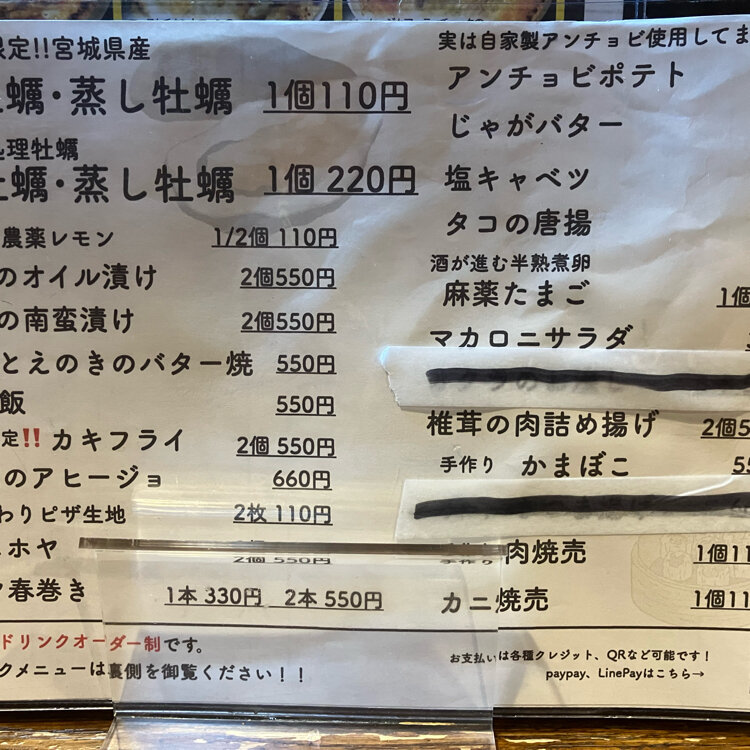 限定!!宮城県産
牡蠣・蒸し牡蠣 1個110円
処理牡蠣
牡蠣・蒸し牡蠣 1個 220円
農薬レモン 1/2個 110円
のオイル漬け 2個550円
の南蛮漬け 2個550円
とえのきのバター焼 550円
飯 550円
定!! カキフライ 2個 550円
のアヒージョ 660円
わりピザ生地 2枚 110円
ホヤ
2個 550円
春巻き 1本 330円 2本 550円
ドリンクオーダー制です。
クメニューは裏側を御覧ください！！
実は自家製アンチョビ使用してま
アンチョビポテト
じゃがバター
塩キャベツ
タコの唐揚
酒が進む半熟煮卵
麻薬たまご 1個
マカロニサラダ
椎茸の肉詰め揚げ 2個5
手作り かまぼこ 55
手作り 肉焼売 1個11
カニ焼売 1個11
お支払いは各種クレジット、QRなど可能です！
paypay、LinePayはこちら→